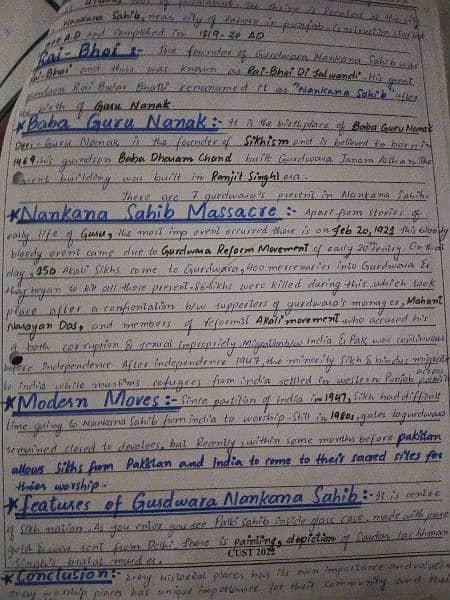 Nankana Sahib, near city of Lahore in punjab. Construction started
A.D and completed in 1819-20 AD
Rai-Bhoi :- The founder of Gurdwara Nankana Sahib was
Rai-Bhoi and thus was known as Rai-Bhoi Di Talwandi. His great
Rai Bular Bhatti renamed it as "Nankana Sahib" after
the birth of Guru Nanak.
*Baba Guru Nanak:- It is the birthplace of Baba Guru Nanak
Dev. Guru Nanak is the founder of Sikhism and is believed to born in
1469. his grandson Baba Dharam Chand built Gurdwara Janam Asthan. The
building was built in Ranjit Singh era.
There are 7 gurdwara's present in Nankana Sahib.
*Nankana Sahib Massacre :- Apart from stories of
early life of Guru, the most imp event occurred there is on Feb 20, 1921 this bloody
bloody event came due to Gurdwara Reform Movement of early 20th century. On that
day, 250 Akali Sikhs come to Gurdwara, 400 mercenaries into Gurdwara &
they began to kill all those present. 86 sikhs were killed during this which took
place after a confrontation b/w supporters of gurdwara's manager, Mahant
Narayan Das, and members of reformist Akali movement who accused his
both corruption & sexual impropriety. Migration b/w India & Pak was continuous
before independence. After independence 1947, the minority sikh & hindus migrate
to india while muslims refugees from india settled in western Punjab across
*Modern Moves:- Since partition of India in 1947, Sikh had difficult
time going to Nankana Sahib from india to worship. Still in 1980s, gates to gurdwara
remained closed to devotees, but Recently, within some months before pakistan
allows Sikhs from Pakistan and India to come to their sacred sites for
their worship.
*features of Gurdwara Nankana Sahib:- It is centre
of sikh nation. As you enter you see Palki Sahib inside glass case, made with pure
gold & was sent from Delhi. There is painting, depiction of Sardar Lachhman
Singh's brutal murder.
CUST 2022
*Conclusion:- Every historial places has its own importance and values
every worship places has unique importance for their community and their